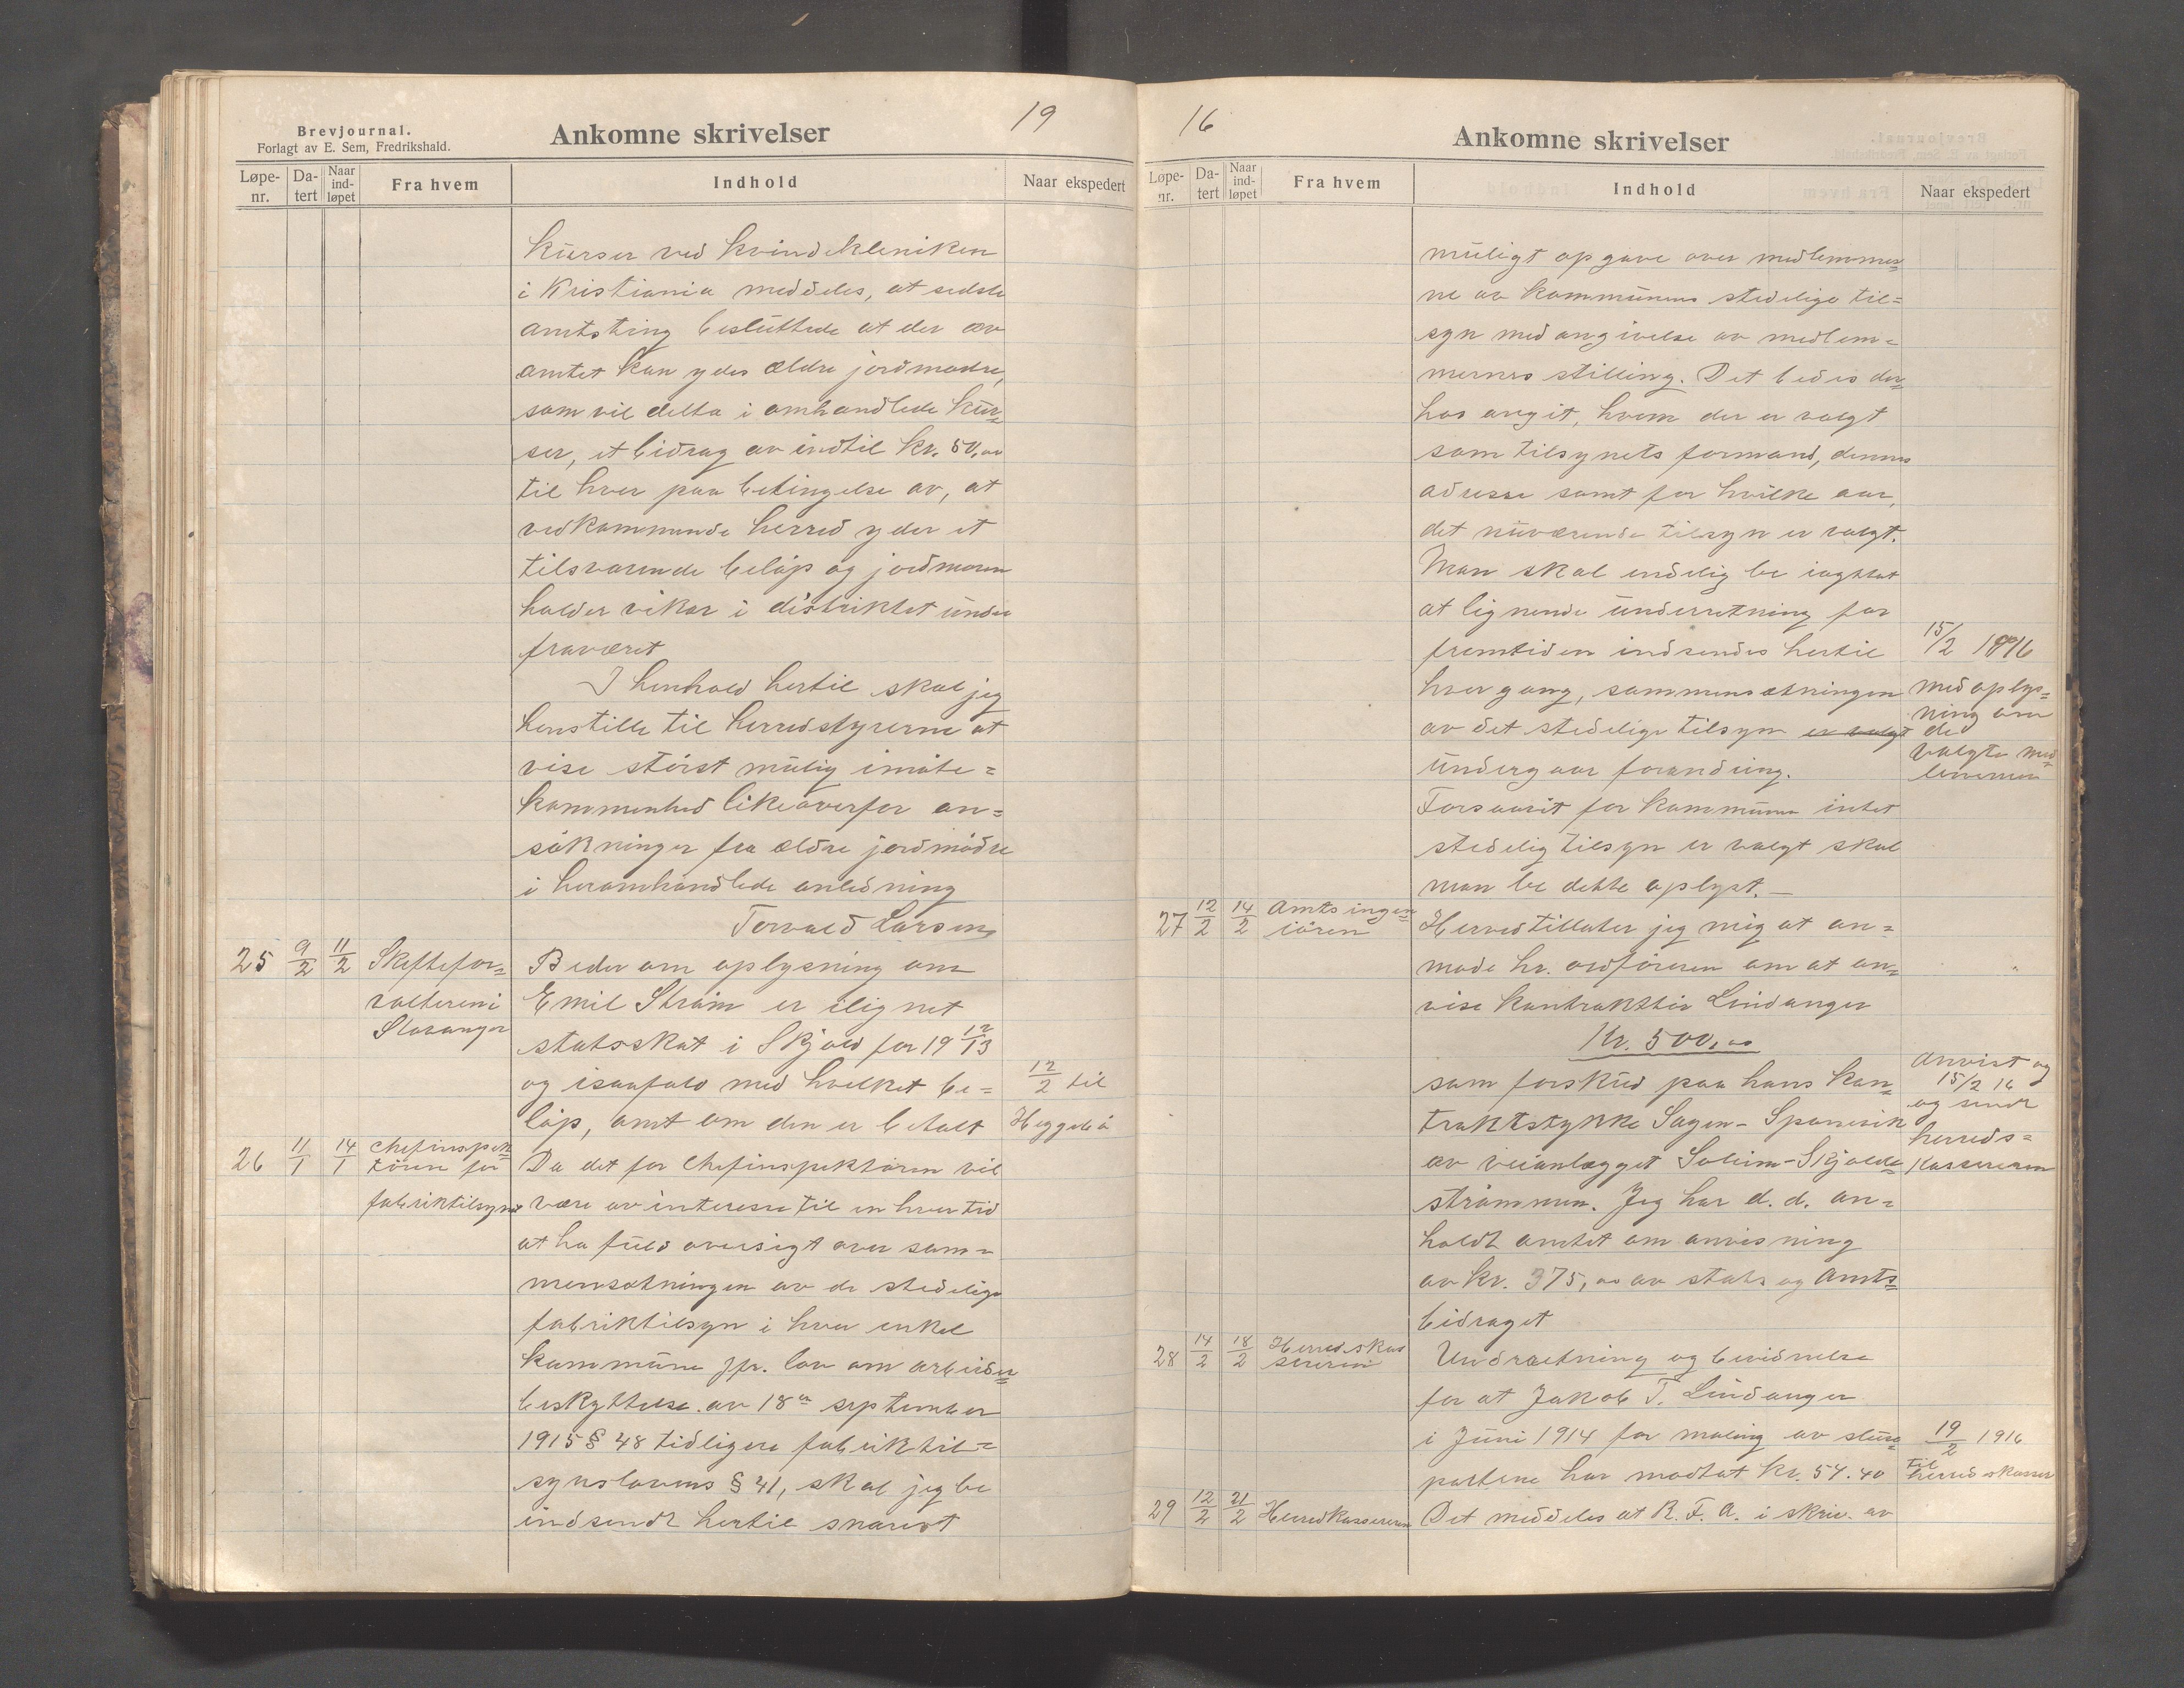 Brevjournal.
Forlagt av E. Sem, Fredrikshald.
Ankomne skrivelser
19
Løpe-nr.
Da-tert
Naar ind-løpet
Fra hvem
Indhold
Naar ekspedert
kurser ved kvindekleniken
i Kristiania meddeles, at sedste
amtsting besluttede at der av
amtet kan ydes ældre jordmødre,
som vil delta i omhandlede kur=
ser, et bidrag av indtil kr. 50,00
til hver paa betingelse av, at
vedkommende herred yder et
tilsvarende beløp og jordmoren
holder vikar i distriktet under
fraværet
I henhold hertil skal jeg
henstille til herredstyrerne at
vise størst mulig imøte=
kommenhed likeoverfor an=
søkninger fra ældre jordmødre
i heromhandlede anledning
Torvald Larsen
25 9/2 11/2 Skiftefor= Beder om oplysning om
valteren i Emil Strøm er ilignet
Stavanger statsskat i Skjold for 19 12/13
og isaafald med hvilket be= 12/2 til
løp, amt om den er betalt Heggebø
26 11/1 14/1 Chefinspek=
tøren for Da det for Chefinspektøren vil
fabriktilsynet være av interesse til en hver tid
at ha fuld oversigt over sam=
mensætningen av de stedelige
fabriktilsyn i hver enkel
kommune jfr. lov om arbeider=
beskyttelse av 18de september
1915 § 48 tidligere fabriktil=
synslovens § 41, skal jeg be
indsendt hertil snarest
16
Ankomne skrivelser
Løpe-nr.
Da-tert
Naar ind-løpet
Fra hvem
Indhold
Naar ekspedert
muligt opgave over medlemmer=
ne av kommunens stedelige til=
syn med angivelse av medlem=
mernes stilling. Det bedes der=
hos angit, hvem der er valgt
som tilsynets formand, dennes
adresse samt for hvilke aar,
det nuværende tilsyn er valgt.
Man skal endelig be iagttat
at lignende underretning for
fremtiden indsendes hertil 15/2 1916
hver gang, sammensætningen med oplys=
av det stedelige tilsyn er valgt ning om de
undergaar forandring. valgte med=
lemmer
Forsaavit for kommunen intet
stedelig tilsyn er valgt skal
man be dette oplyst. —
27 12/2 14/2 Amtsingen=
iøren Herved tillater jeg mig at an=
mode hr. ordføreren om at an=
vise kontraktør Lindanger
Kr. 500,00
som forskud paa hans kon= Anvist og
15/2 16
traktstykke Sagen - Spanesik og sendt
av veianlægget Soleim - Skjolde= herreds=
kassereren
strømmen. Jeg har d. d. an=
holdt amtet om anvisning
av kr. 375,00 av stats og amts=
bidraget
28 14/2 18/2 Herredskas
sereren Undrætning og bevidnelse
for at Jakob T. Lindanger
i Juni 1914 for maling av sluse= 19/2 1916
portene har modtat kr. 54.40 Til herredskasser
29 12/2 21/2 Herredkassereren Det meddeles at R. F. A. i skriv. av